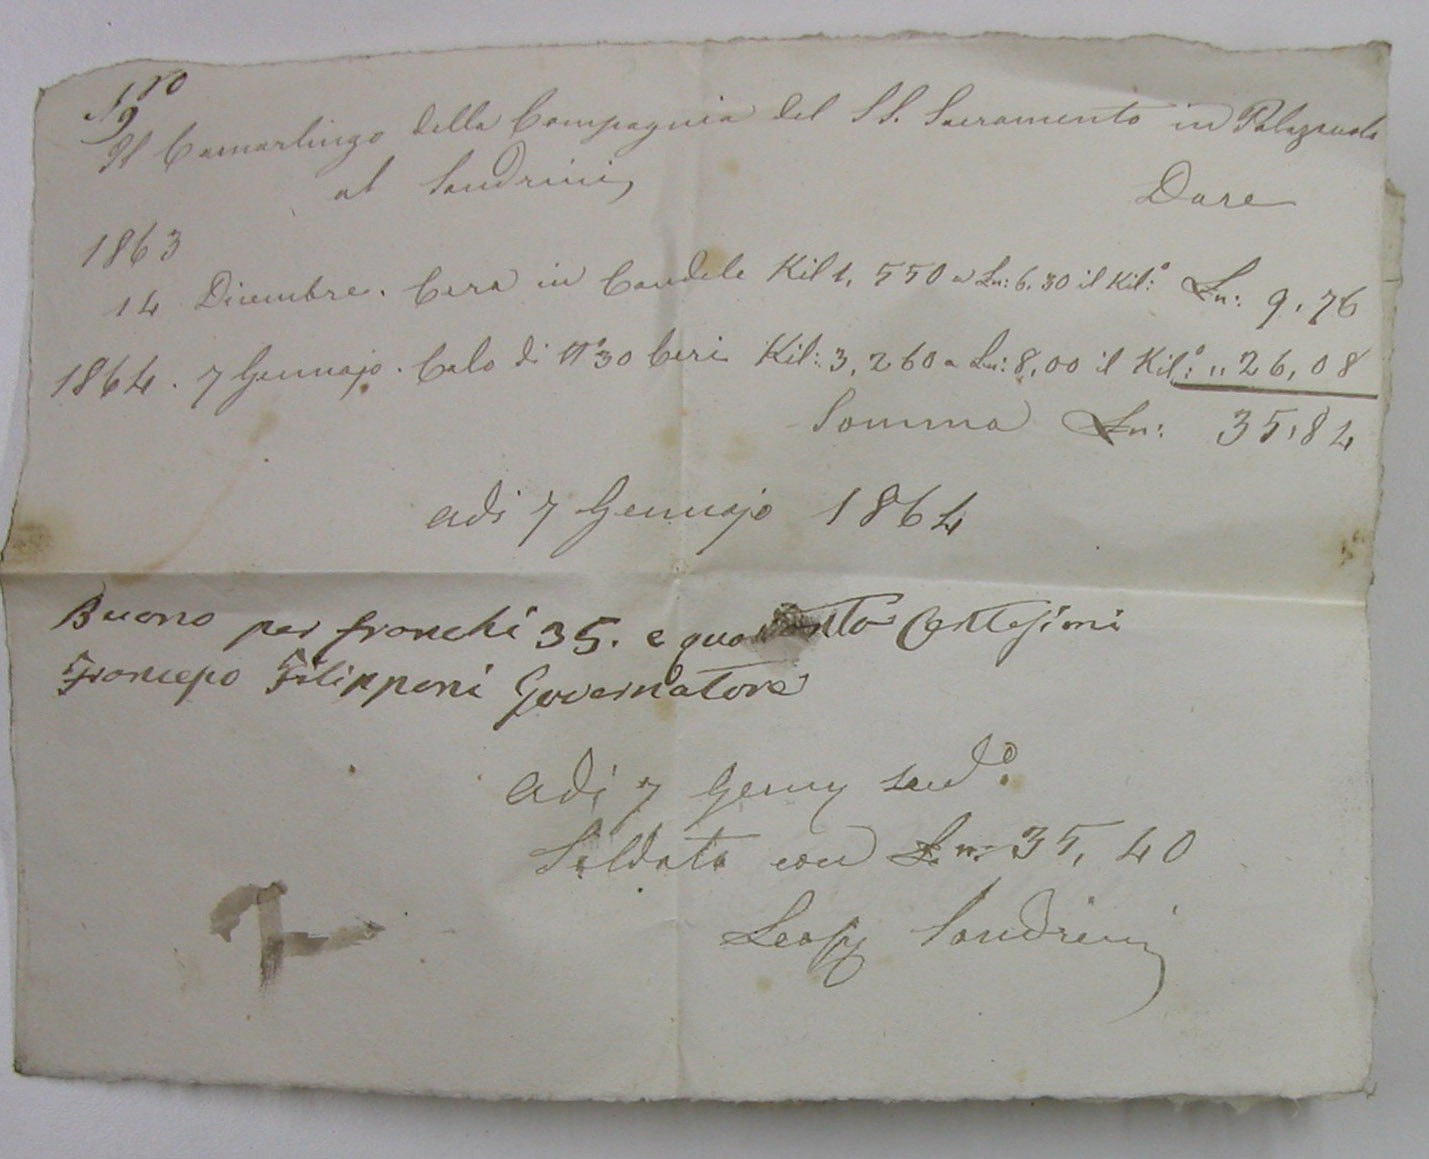 Nro 9
Il Camarlingo della Compagnia del SS. Sacramento in Palazzuolo
al Sandrini Dare
1863
14 Dicembre. Cera in Candele Kil 1, 550 a Ln: 6.30 il Kil:o Ln: 9,76
1864. 7 Gennajo. Calo di No 30 Ceri Kil: 3,260 a Ln: 8,00 il Kil:o " 26,08
Somma Ln: 35,84
adi 7 Gennajo 1864
Buono per franchi 35. e quaranta Centesimi
Francesco Filipponi Governatore
Adi 7 Genn sud.o
Saldata con Ln: 35,40
Leop Sandrini